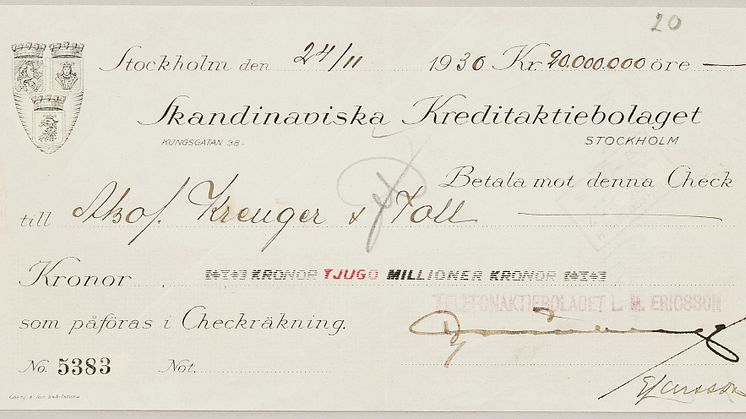 20
Stockholm den 24/11 1930 Kr. 20.000.000 öre —
Skandinaviska Kreditaktiebolaget
KUNGSGATAN 38. STOCKHOLM
Betala mot denna Check
till Akbf. Kreuger & Toll
Kronor KRONOR TJUGO MILLIONER KRONOR
TELEFONAKTIEBOLAGET L. M. ERICSSON
som påföras i Checkräkning.
No. 5383 Not.